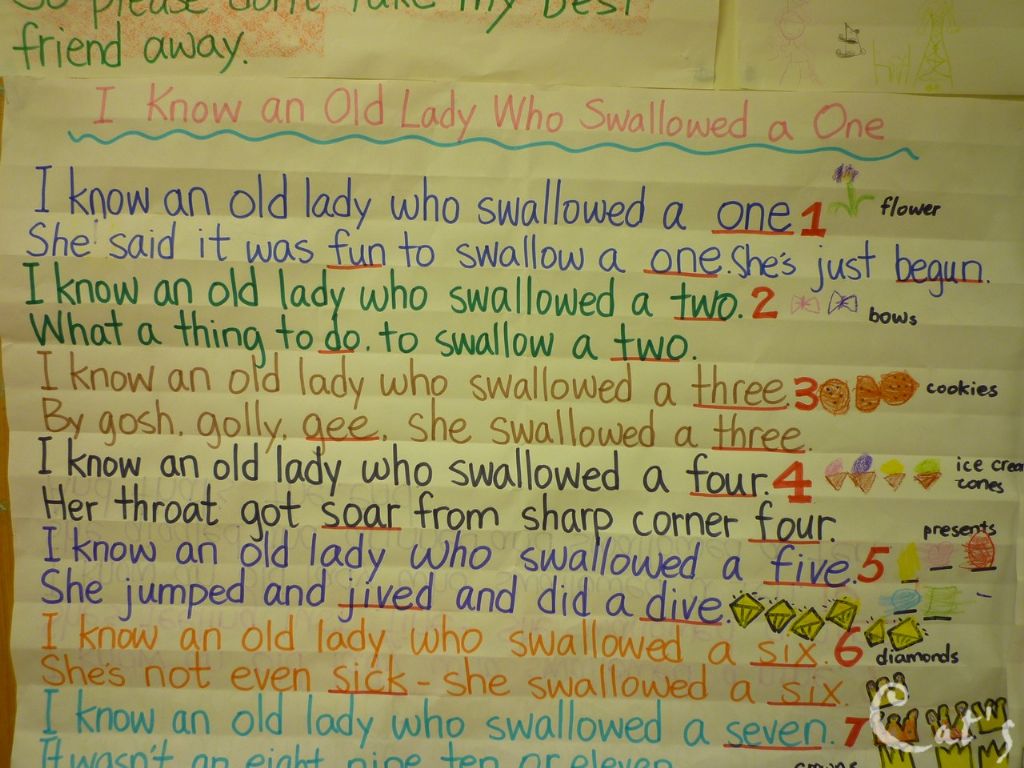 So please don't take my best
friend away.
I Know an Old Lady Who Swallowed a One
I know an old lady who swallowed a one. 1 flower
She said it was fun to swallow a one. She's just begun.
I know an old lady who swallowed a two. 2 bows
What a thing to do. to swallow a two.
I know an old lady who swallowed a three. 3 cookies
By gosh, golly, gee, she swallowed a three.
I know an old lady who swallowed a four. 4 ice cream
cones
Her throat got soar from sharp corner four.
presents
I know an old lady who swallowed a five. 5
She jumped and jived and did a dive.
I know an old lady who swallowed a six. 6 diamonds
She's not even sick - she swallowed a six.
I know an old lady who swallowed a seven. 7
It wasn't an eight nine ten or eleven.
crowns
Cat's